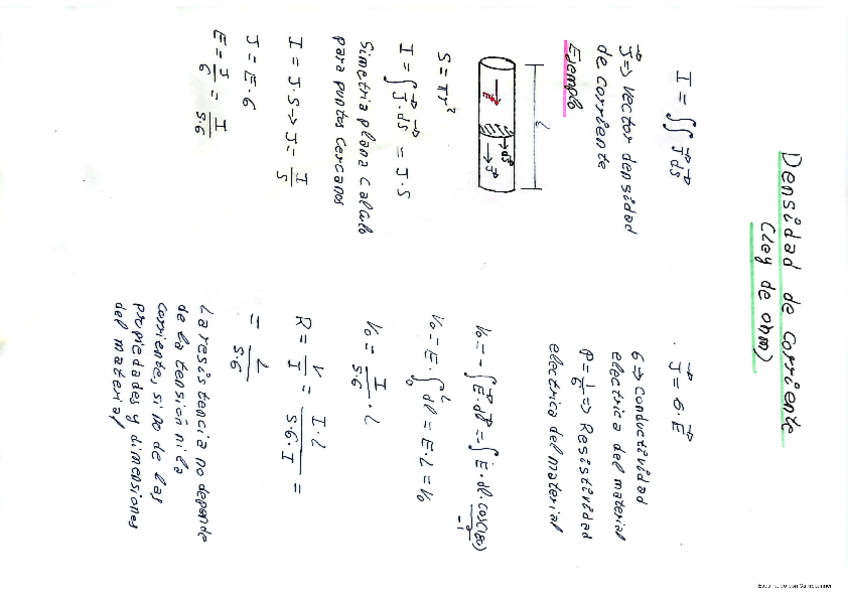 Densidad de corriente
(ley de ohm)
I = ∬ J⃗ dS⃗
J⃗ ⇒ vector densidad
de corriente
Ejemplo
L
E⃗
dS⃗
J⃗
S = πr²
I = ∫ J⃗ · dS⃗ = J · S
Simetria plana calculo
para puntos cercanos
I = J · S → J = I/S
J = E · σ
E = J/σ = I/(S·σ)
J⃗ = σ · E⃗
σ ⇒ conductividad
electrica del material
ρ = 1/σ ⇒ Resistividad
electrica del material
V₀ = - ∫ E⃗ · dl⃗ = ∫ E · dl · cos(180)
-1
V₀ = E · ∫₀ᴸ dl = E · L = V₀
V₀ = I/(S·σ) · L
R = V/I = I·L/(S·σ·I) =
= L/(S·σ)
La resistencia no depende
de la tensión ni la
corriente, si no de las
propiedades y dimensiones
del material